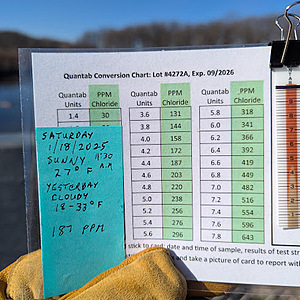 Quantab Conversion Chart: Lot #4272A, Exp. 09/2026
Quantab Units PPM Chloride Quantab Units PPM Chloride Quantab Units PPM Chloride
1.4 30 3.6 131 5.8 318
3.8 144 6.0 341
4.0 158 6.2 366
4.2 172 6.4 392
4.4 187 6.6 419
4.6 203 6.8 449
4.8 220 7.0 482
5.0 238 7.2 516
5.2 256 7.4 554
5.4 276 7.6 596
5.6 296 7.8 643
SATURDAY
1/18/2025
SUNNY 11:30 A.M
27° F
YESTERDAY
CLOUDY
18-33° F
187 PPM
stick to card: date and time of sample, results of test str
and take a picture of card to report with